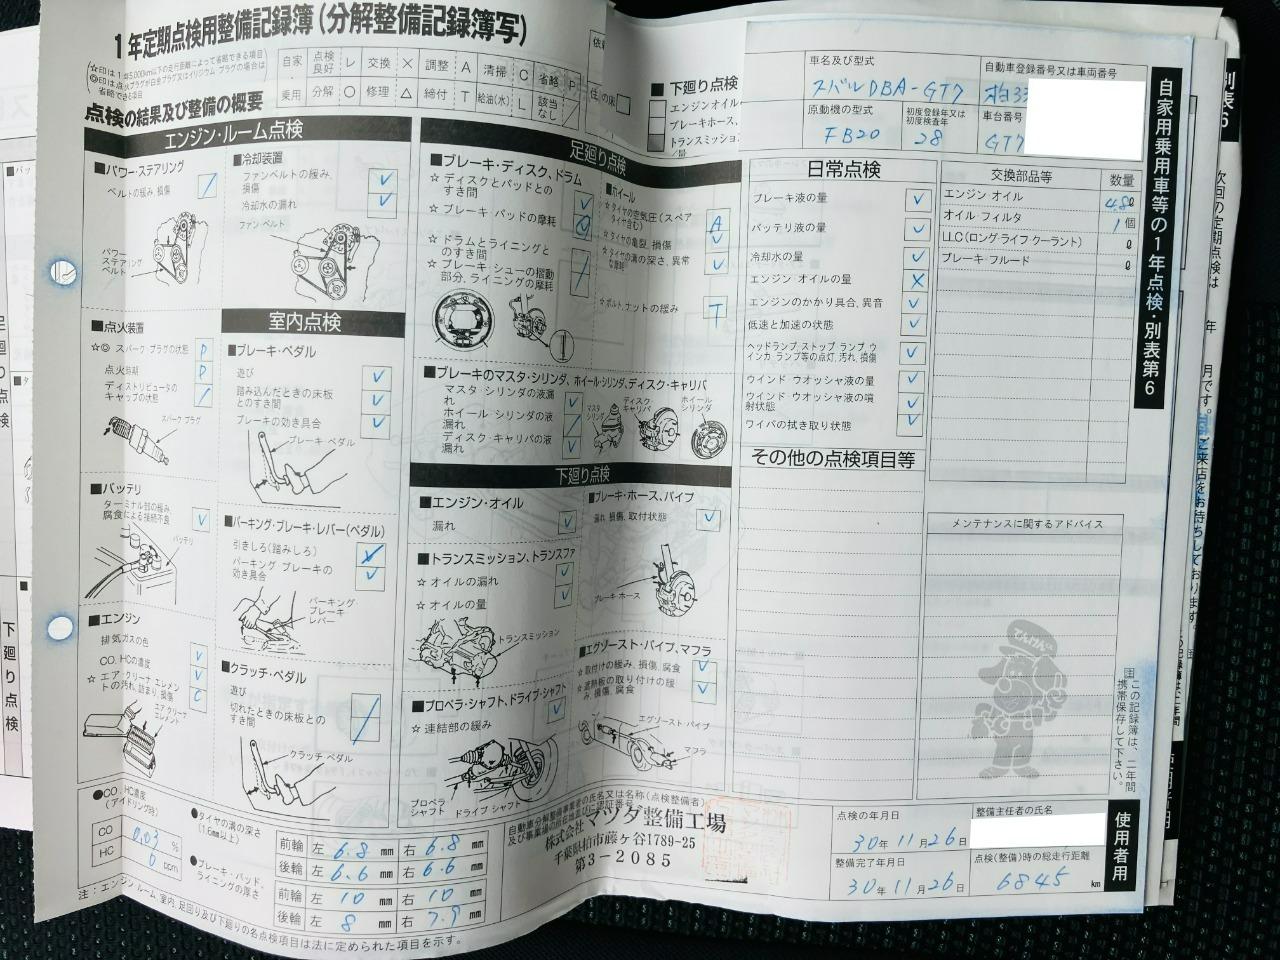 1年定期点検用整備記録簿(分解整備記録簿写)
点検の結果及び整備の概要
自家
乗用
点検良好
レ
交換
×
調整
A
清掃
C
省略
P
分解
○
修理
△
締付
T
給油(水)
L
該当なし
／
エンジン・ルーム点検
■パワー・ステアリング
ベルトの緩み、損傷
パワー
ステアリング
ベルト
■冷却装置
ファンベルトの緩み、
損傷
冷却水の漏れ
ファン・ベルト
■点火装置
☆◎ スパーク・プラグの状態 P
点火時期 P
ディストリビュータの
キャップの状態
スパーク プラグ
■バッテリ
ターミナル部の緩み、
腐食による接続不良
バッテリ
■エンジン
排気ガスの色
CO、HCの濃度
☆ エア・クリーナ エレメン
トの汚れ、詰まり、損傷 C
エア クリーナ
エレメント
室内点検
■ブレーキ・ペダル
遊び
踏み込んだときの床板
とのすき間
ブレーキの効き具合
ブレーキ ペダル
■パーキング・ブレーキ・レバー(ペダル)
引きしろ(踏みしろ)
パーキング ブレーキの
効き具合
パーキング
ブレーキ
レバー
■クラッチ・ペダル
遊び
切れたときの床板との
すき間
クラッチ ペダル
足廻り点検
■ブレーキ・ディスク、ドラム
☆ ディスクとパッドとの
すき間
☆ ブレーキ・パッドの摩耗
☆ ドラムとライニングと
のすき間
☆ ブレーキ・シューの摺動
部分、ライニングの摩耗
■ホイール
☆タイヤの空気圧(スペア
タイヤ含む) A
☆タイヤの亀裂、損傷
☆タイヤの溝の深さ、異常
な摩耗
☆ボルト、ナットの緩み T
■ブレーキのマスタ・シリンダ、ホイール・シリンダ、ディスク・キャリパ
マスタ・シリンダの液漏
れ
ホイール・シリンダの液
漏れ
ディスク・キャリパの液
漏れ
マスタ
シリンダ
ディスク
キャリパ
ホイール
シリンダ
下廻り点検
■エンジン・オイル
漏れ
■トランスミッション、トランスファ
☆ オイルの漏れ
☆ オイルの量
トランスミッション
■プロペラ・シャフト、ドライブ・シャフト
☆ 連結部の緩み
プロペラ
シャフト
ドライブ シャフト
■ブレーキ・ホース、パイプ
漏れ、損傷、取付状態
ブレーキ ホース
■エグゾースト・パイプ、マフラ
☆ 取付けの緩み、損傷、腐食
☆ 遮熱板の取り付けの緩
み、損傷、腐食
エグゾースト・パイプ
マフラ
■下廻り点検
エンジンオイル
ブレーキホース、
トランスミッション
車名及び型式
スバルDBA-GT7
自動車登録番号又は車両番号
柏33
原動機の型式
FB20
初度登録年又は
初度検査年
28
車台番号
GT7
日常点検
ブレーキ液の量
バッテリ液の量
冷却水の量
エンジン・オイルの量 ×
エンジンのかかり具合、異音
低速と加速の状態
ヘッドランプ、ストップ ランプ、ウ
インカ・ランプ等の点灯、汚れ、損傷
ウインド ウオッシャ液の量
ウインド ウオッシャ液の噴
射状態
ワイパの拭き取り状態
その他の点検項目等
交換部品等 数量
エンジン オイル 4.8ℓ
オイル フィルタ 1個
LLC(ロング・ライフ クーラント) ℓ
ブレーキ・フルード ℓ
メンテナンスに関するアドバイス
てんけんくん
自家用乗用車等の1年点検・別表第6
使用者用
この記録簿は、二年間
携帯保存して下さい。
●CO、HC濃度
(アイドリング時)
CO 0.03 %
HC 0 ppm
●タイヤの溝の深さ
(1.6mm以上)
前輪 左 6.8 mm 右 6.8 mm
後輪 左 6.6 mm 右 6.6 mm
●ブレーキ・パッド、
ライニングの厚さ
前輪 左 10 mm 右 10 mm
後輪 左 8 mm 右 7.9 mm
注:エンジン・ルーム、室内、足回り及び下廻りの各点検項目は法に定められた項目を示す。
株式会社 マツダ整備工場
千葉県柏市藤ヶ谷1789-25
第3-2085
点検の年月日
30年11月26日
整備完了年月日
30年11月26日
整備主任者の氏名
点検(整備)時の総走行距離
6845 km
別表6
下廻り点検